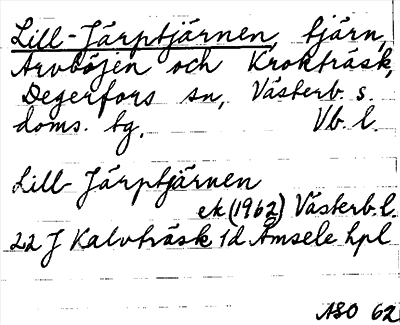 Lill-Järptjärnen, tjärn,
Arvböjen och Krokträsk,
Degerfors sn, Västerb. s.
doms. tg. Vb. l.
Lill-Järptjärnen
ek (1962) Västerb. l.
22 J Kalvträsk 1d Åmsele hpl
ASO 62